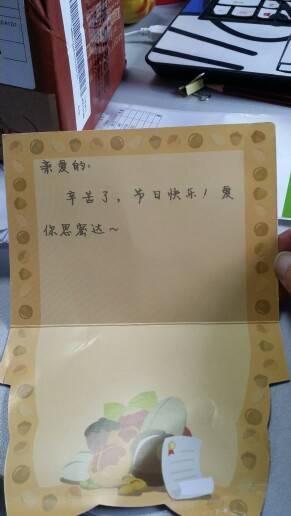 亲爱的:
辛苦了，节日快乐！爱
你思密达～